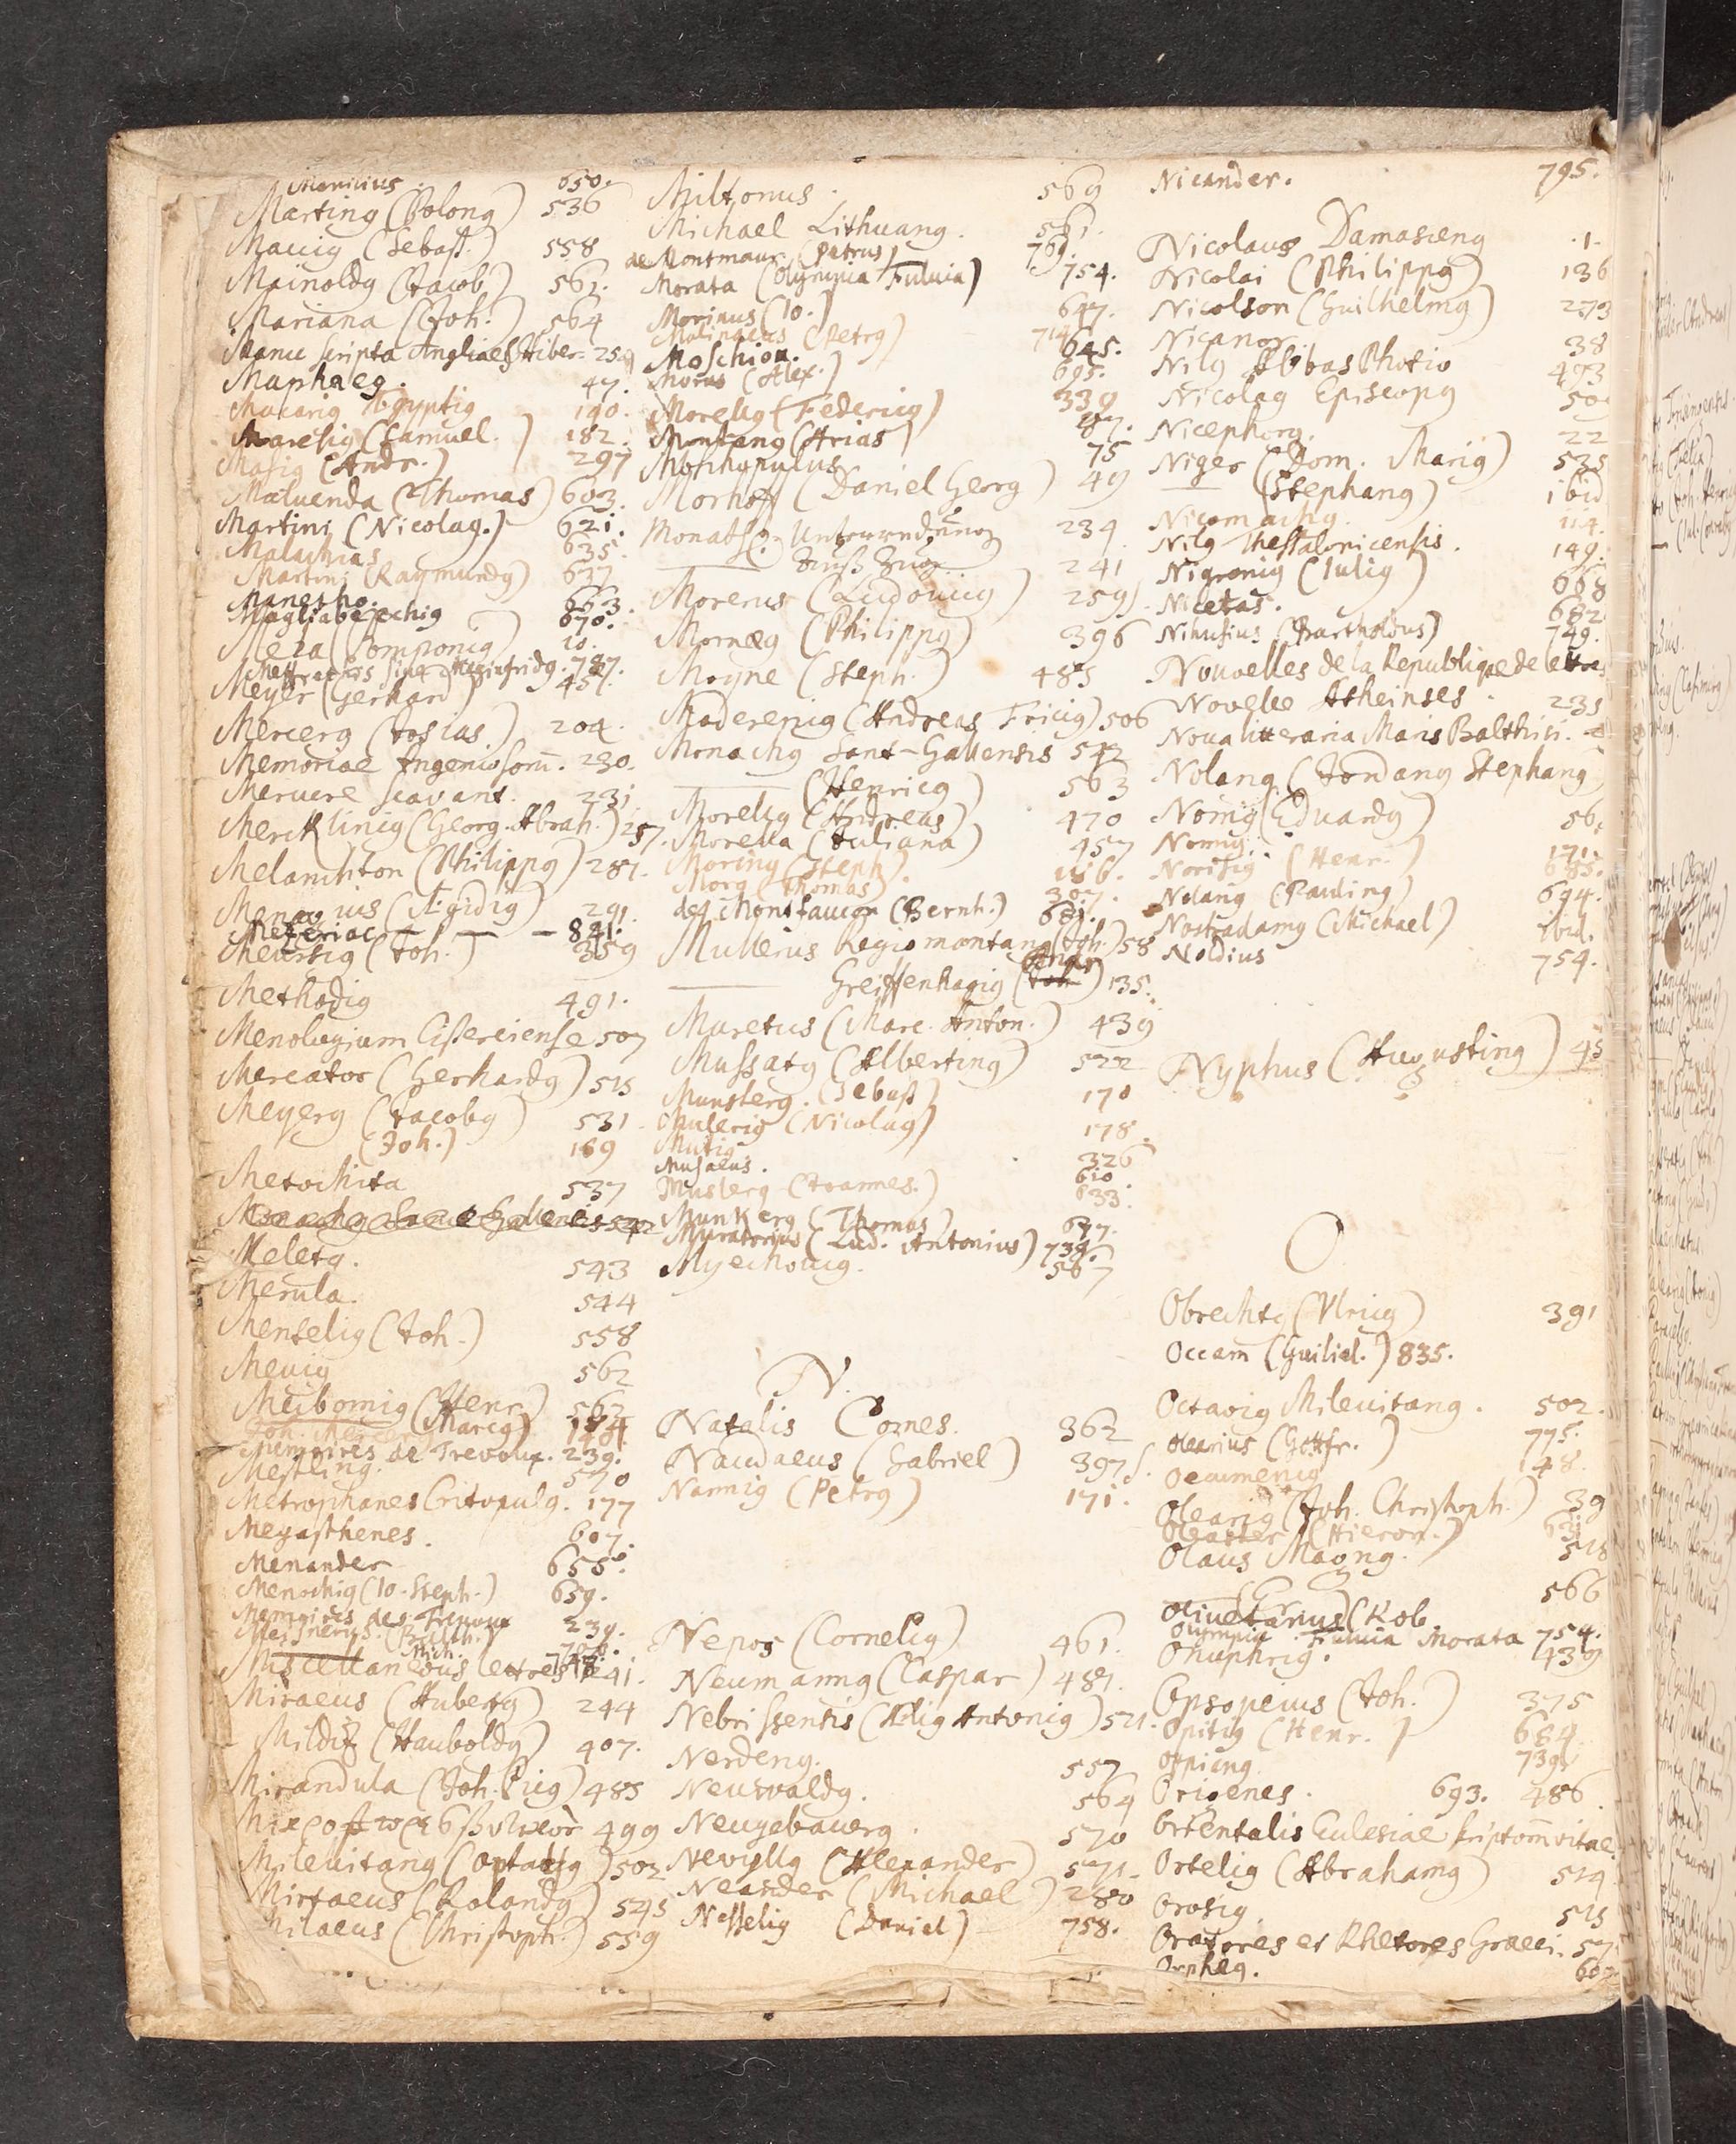 Manicius. 650.
Marting (Polong) 536
Mauig (Sebast.) 558
Mainoldg (Jacob) 561.
Mariana (Joh.) 564
Manuscripta Angliae & Hiber. 259
Maphaeg. 47.
Macarig Egyptig 140.
Maresig (Samuel.) 182.
Masig (Andr.) 297
Maluenda (Thomas) 603.
Martini (Nicolag.) 621.
Malachias 635.
Martini (Raymundg) 637
Manetho. 663.
Magliabecchig 670.
Mela (Pomponig) 10.
Meyer (Gerhard) 457.
Mercerg (Josias) 204.
Memoriae Ingeniosorum. 230.
Mercure scavant. 231
Mercklinig (Georg. Abrah.) 257.
Melanchton (Philippg) 287.
(Ægidig) 291.
Mezeriac — — — 841.
Meursig (Joh.) 359
Methodig 491.
Menologium Cisterciense 507
Mercator (Gerhardg) 515
Meyerg (Jacobg) 531
(Joh.) 169
Metochita 537
Meletg. 543
Merula. 544
Mentelig (Joh.) 558
Meuig 562
Meibomig (Henr.) 562
(Marcg)
Memoires de Trevoux. 239.
Mestling. 570
Metrophanes Critopulg. 177
Megasthenes. 607.
Menander 655.
Menochig (Io. Steph.) 659.
Memoires des Trevoux 239.
Miscellaneous lettres 241.
Miraeus (Hubertg) 244
Mildiz (Hauboldg) 407.
Mirandula (Joh. Picg) 485
499
Mileuitang (Optatg) 502
Mirtaeus (Rolandg) 545
Milaeus (Christoph.) 559
Miltonus. 569
Michael Lithuang. 561.
de Montmaur (Petrus) 769.
Morata (Olympia Fuluia) 754.
Morinus (Io.) 647.
Molinaeus (Petrg) 714
Moschion. 645.
Morus (Alex.) 695.
Morellg (Federicg) 339
Montang (Arias) 87.
Moschopulus 75
Morhoff (Daniel Georg) 49
234
241
Morerus (Ludouicg) 259
Mornaeg (Philippg) 396
Moyne (Steph.) 485
Moderenig (Andreas Fricig) 506
Monachg Sant-Gallensis 542
——— (Henricg) 563
Morellg (Andreas) 470
Morella (Juliana) 457
Moring (Steph). 116.
Morg (Thomas) 307.
de Montfaucon (Bernh.) 681.
Mullerus Regiomontang (Joh.) 58
——— Greiffenhagig (Andr) 135.
Muretus (Marc. Anton.) 439
Mussatg (Alberting) 522
Munsterg. (Sebast) 170
Mulerig (Nicolag) 178.
Mutig. 326
Musaeus. 610.
Musterg (Joannes.) 633.
Munkerg (Thomas) 677.
Muratorius (Lud. Antonius) 739.
Myechouig. 567
N.
Natalis Comes. 362
Naudaeus (Gabriel) 397
Nannig (Petrg) 171.
Nepos (Cornelig) 461.
Neumanng (Caspar) 487.
Nebrissensis (Ælig Antonig) 521.
Nerdeng. 557
Neuwaldg. 564
Neugebauerg. 570
Nevyllg (Alexander) 571.
Neander (Michael) 280
Nesselig (Daniel) 758.
Nicander. 795.
Nicolaus Damasceng .1.
Nicolai (Philippg) 136
Nicolson (Guilhelmg) 273
Nicanor. 38
Nilg Abbas Photio 493
Nicolag Episcopg 50
Nicephorg. 22
Niger (Dom. Marig) 535
——— (Stephang) ibid
Nicomachg. 114.
Nilg Thessalonicensis. 149.
Nigronig (Iulig) 668
Nicetas. 682
Nihusius (Bartholdus) 749.
Nouvelles de la Republique de lettres
Novelle Atheinses. 235
Noua litteraria Maris Balthici.
Nolang (Jordang Stephang)
Nonig (Eduardg) 56
Nonnus. 171.
Norisig (Henr.) 685.
Nolang (Pauling) 694.
Nostradamg (Michael) ibid.
Noldius 754.
Nyphus (Augusting) 45
O
Obrechtg (Ulricg) 391
Occam (Guiliel.) 835.
Octavig Mileuitang. 502.
Olearius (Gottfr.) 775.
Oecumenig 148.
Olearig (Joh. Christoph.) 39
Oleaster (Hieron.) 63
Olaus Magng. 518
566
Olivetarius (Rob.
Olympia Fuluia Morata 754.
Onuphrig. 439
Opsopeius (Joh.) 375
Opitig (Henr.) 684
Oppiang. 739
Origenes. 693. 486.
Orientalis Eulesiae scriptorum vitae.
Ortelig (Abrahamg) 514
Orosig. 515
Oratores et Rhetores Graeci. 57
Orpheg. 60